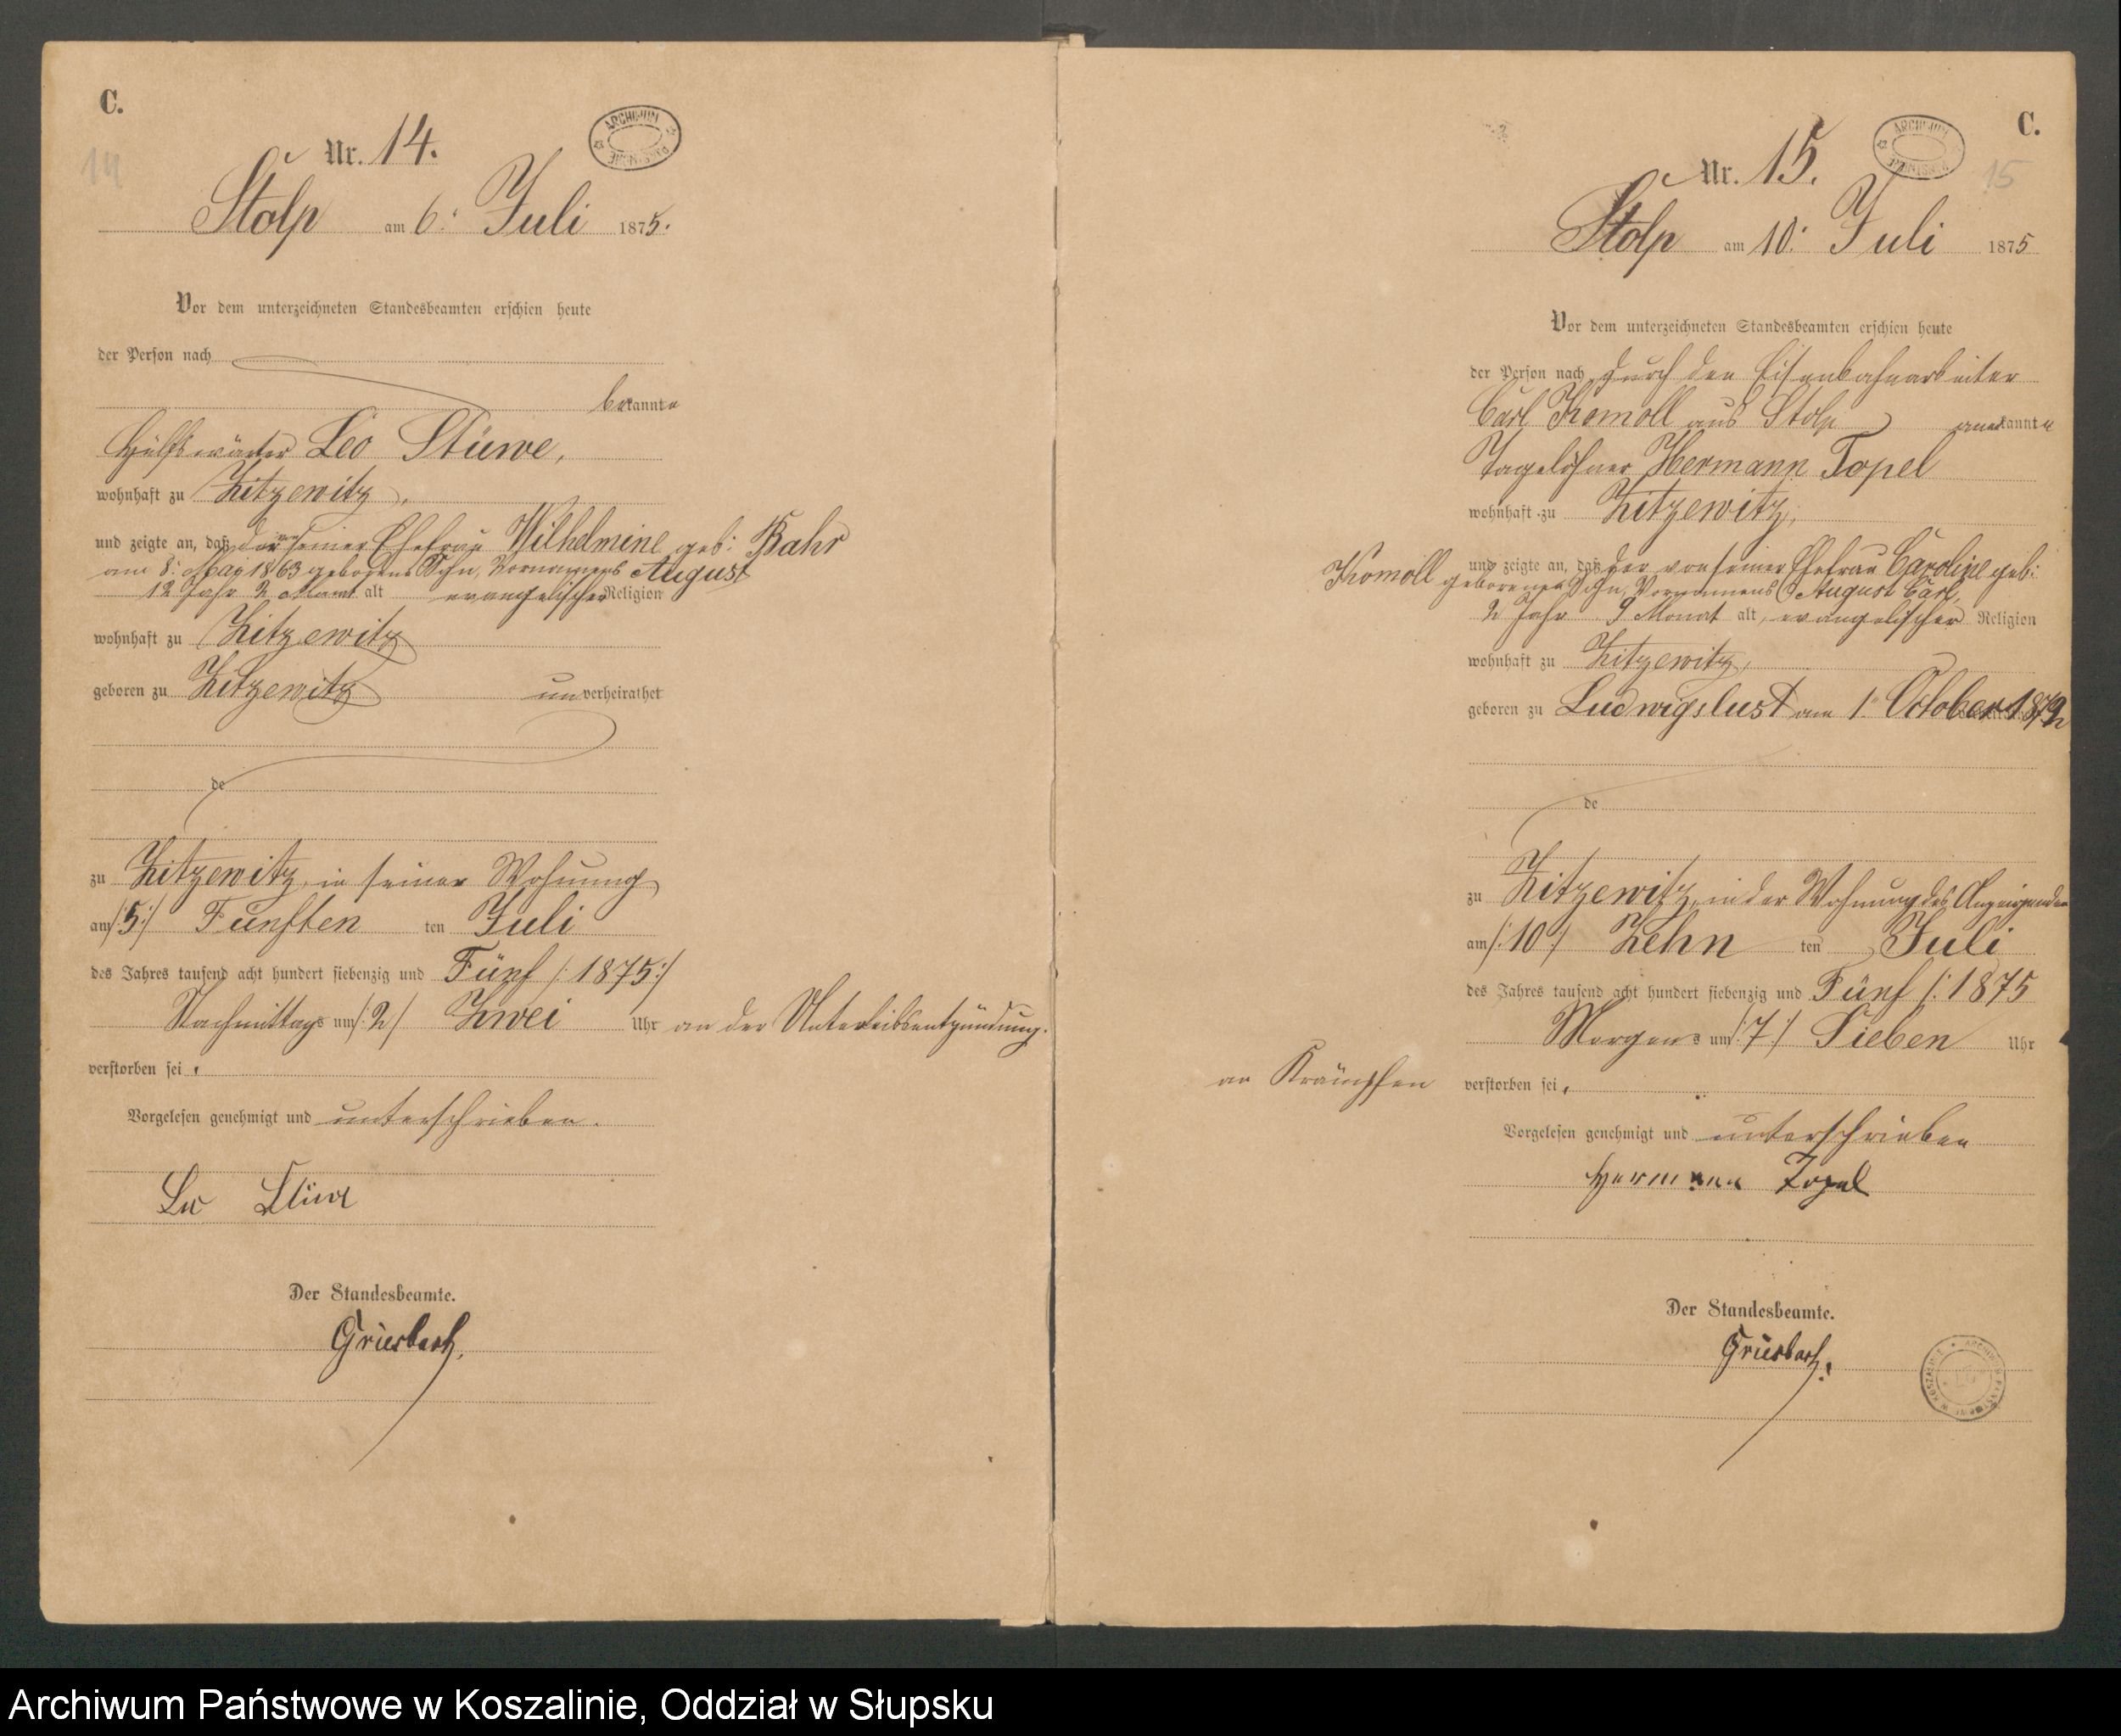 C.
14
Nr. 14.
ARCHIWUM
Stolp am 6. Juli 1875.
Vor dem unterzeichneten Standesbeamten erschien heute
der Person nach
bekannte
Hülfswärter Leo Stüwe,
wohnhaft zu Zitzewitz,
und zeigte an, daß der von seiner Ehefrau Wilhelmine geb: Bahr
am 8. May 1863 geborene Sohn, Vornamens August
12 Jahr 2 Monat alt evangelischer Religion
wohnhaft zu Zitzewitz
geboren zu Zitzewitz unverheirathet
de
zu Zitzewitz, in seiner Wohnung
am /:5:/ Fünften ten Juli
des Jahres tausend acht hundert siebenzig und Fünf /:1875:/
Nachmittags um /:2:/ Zwei Uhr an der Unterleibsentzündung.
verstorben sei.
Vorgelesen genehmigt und unterschrieben.
Leo Stüwe
Der Standesbeamte.
Griesbach.
C.
15
Nr. 15.
ARCHIWUM
Stolp am 10. Juli 1875
Vor dem unterzeichneten Standesbeamten erschien heute
der Person nach durch den Eisenbahnarbeiter
Carl Komoll aus Stolp anerkannte
Tagelöhner Hermann Topel
wohnhaft zu Zitzewitz,
und zeigte an, daß der von seiner Ehefrau Caroline geb:
Komoll geborene Sohn, Vornamens August Carl,
2 Jahr 9 Monat alt, evangelischer Religion
wohnhaft zu Zitzewitz,
geboren zu Ludwigslust am 1. October 1872
de
zu Zitzewitz, in der Wohnung des Anzeigenden
am /:10:/ Zehn ten Juli
des Jahres tausend acht hundert siebenzig und Fünf /:1875
Morgens um /:7:/ Sieben Uhr
an Krämpfen verstorben sei.
Vorgelesen genehmigt und unterschrieben
Hermann Topel
Der Standesbeamte.
Griesbach.
Archiwum Państwowe w Koszalinie, Oddział w Słupsku